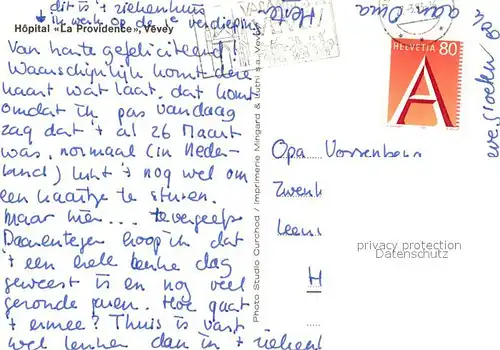 dit is 't ziekenhuis
ik werk op de 1e verdieping
Hôpital «La Providence», Vevey
Van harte gefeliciteerd!
Waarschijnlijk komt deze
kaart wat laat, dat komt
omdat ik pas vandaag
zag dat 't al 26 Maart
was, normaal (in Neder-
land) lukt 't nog wel om
een kaartje te sturen.
Maar hier... tevergeefs
Daarentegen hoop ik dat
't een hele leuke dag
geweest is en nog veel
gezonde jaren. Hoe gaat
't ermee? Thuis is vast
wel leuker dan in 't zieken
Photo Studio Curchod / Imprimerie Mingard & Luthi s.a., Vevey
aan Oma
HELVETIA 80
A
Opa Vorsenbe
Zwen
Leen
H
privacy protection
Datenschutz